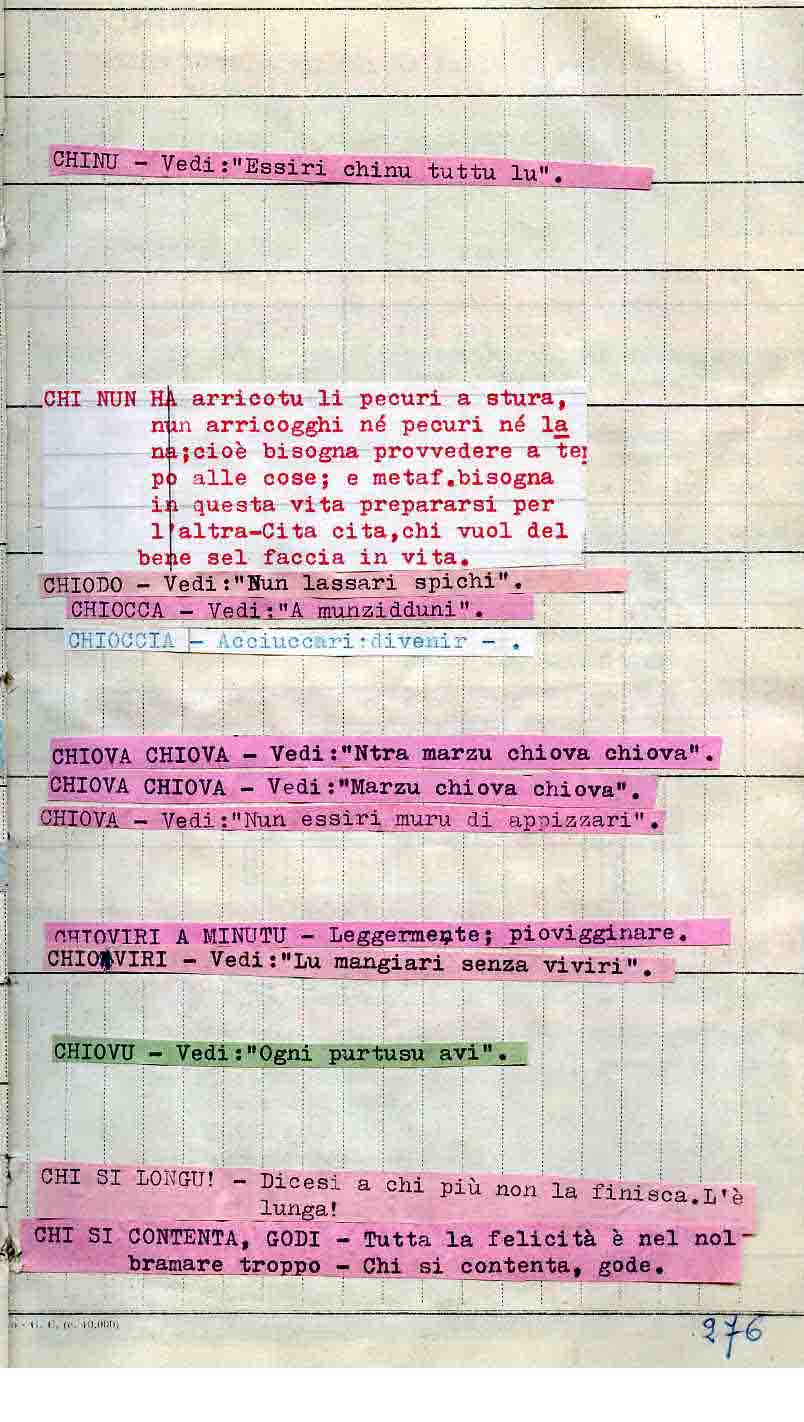 CHINU - Vedi:"Essiri chinu tuttu lu".
CHI NUN HA arricotu li pecuri a stura,
nun arricogghi né pecuri né la
na;cioè bisogna provvedere a tem
po alle cose; e metaf.bisogna
in questa vita prepararsi per
l'altra-Cita cita,chi vuol del
bene sel faccia in vita.
CHIODO - Vedi:"Nun lassari spichi".
CHIOCCA - Vedi:"A munzidduni".
CHIOCCIA - Acciuccari:divenir - .
CHIOVA CHIOVA - Vedi:"Ntra marzu chiova chiova".
CHIOVA CHIOVA - Vedi:"Marzu chiova chiova".
CHIOVA - Vedi:"Nun essiri muru di appizzari".
CHIOVIRI A MINUTU - Leggermente; piovigginare.
CHIOVIRI - Vedi:"Lu mangiari senza viviri".
CHIOVU - Vedi:"Ogni purtusu avi".
CHI SI LONGU! - Dicesi a chi più non la finisca.L'è
lunga!
CHI SI CONTENTA, GODI - Tutta la felicità è nel nol
bramare troppo - Chi si contenta, gode.
276